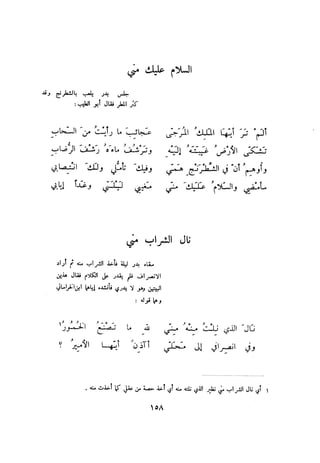 السلام عليك مني
جلس بدر يلعب بالشطرنج وقد
كثر المطر فقال أبو الطيب :
أَلَمْ تَرَ أَيُّهَا المَلِكُ المُرَجَّى عَجَائِبَ مَا رَأَيْتُ مِنَ السَّحَابِ
تَشَكَّى الأَرْضُ غَيْبَتَهُ إِلَيْهِ وَتَرْشُفُ مَاءَهُ رَشْفَ الرُّضَابِ
وَأُوهِمُ أَنَّ فِي الشَّطْرَنْجِ هَمِّي وَفِيكَ تَأَمُّلِي وَلَكَ انْتِصَابِي
سَأَمْضِي وَالسَّلَامُ عَلَيْكَ مِنِّي مَغِيبِي لَيْلَتِي وَغَداً إِيَابِي
نال الشراب مني
سقاه بدر ليلة فأخذ الشراب منه ثم أراد
الانصراف فلم يقدر على الكلام فقال هذين
البيتين وهو لا يدري فأنشده إياهما ابن الخراساني
وهما قوله :
نَالَ الَّذِي نِلْتُ مِنْهُ مِنِّي لِلهِ مَا تَصْنَعُ الخُمُورُ ١
وَفِي انْصِرَافِي إِلَى مَحَلِّي أَآذِنٌ أَيُّهَا الأَمِيرُ ؟
١ أي نال الشراب مني نظير الذي نلته منه أي أخذ حصة من عقلي كما أخذت منه .
١٥٨